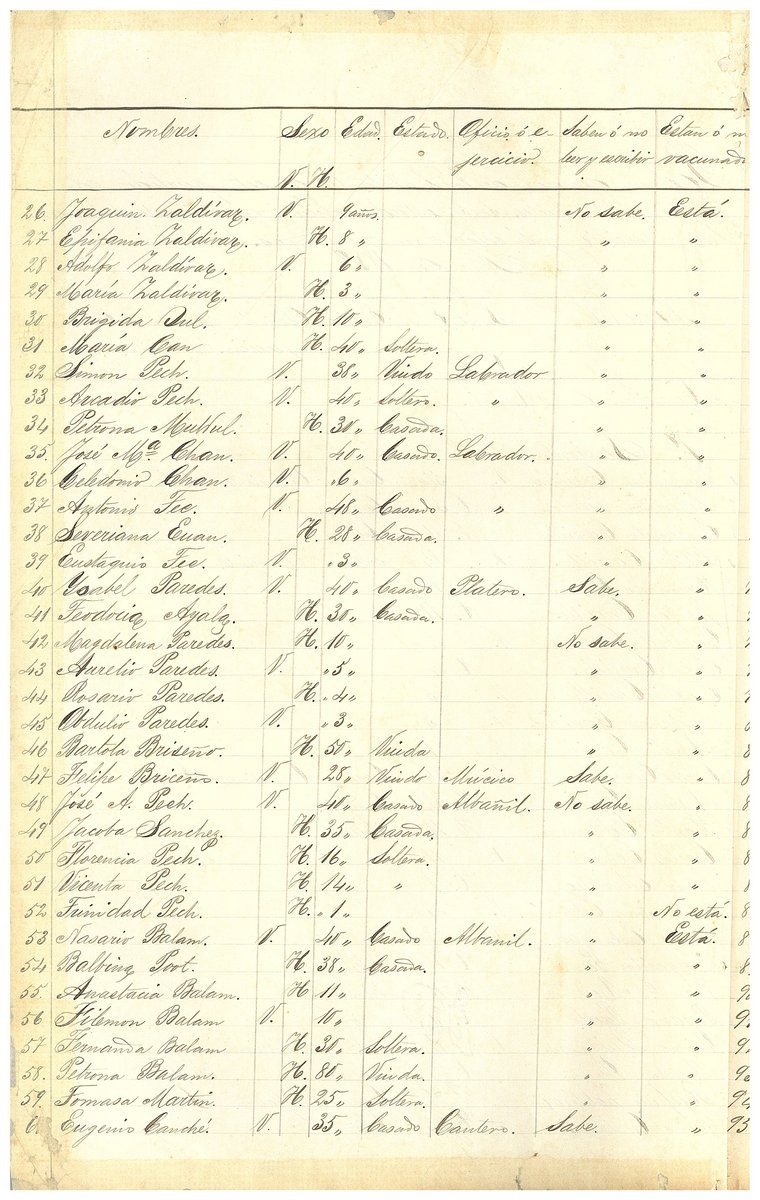 Nombres. Sexo Edad. Estado. Oficio ó e- Saben ó no Estan ó n
jercicio. leer y escribir vacunado
V. H.
26 Joaquin Zaldívar. V. 9 años. No sabe. Está.
27 Epifania Zaldívar. H. 8 " " "
28 Adolfo Zaldívar V. 6 " " "
29 María Zaldívar. H. 3 " " "
30 Brigida Dul. H. 10 " " "
31 María Can H. 40 " Soltera. " "
32 Simon Pech. V. 38 " Viudo Labrador " "
33 Arcadio Pech. V. 40 " Soltero. " " "
34 Petrona Mukul. H. 30 " Casada. " "
35. José Mª Chan. V. 40 " Casado. Labrador. " "
36 Celedonio Chan. V. " 6 " " "
37 Antonio Tec. V. 48 " Casado " " "
38 Severiana Euan. H. 28 " Casada. " "
39 Eustaquio Tec. V. " 3 " " "
40 Ysabel Paredes. V. 40 " Casado Platero. Sabe. "
41 Teodocia Ayala. H. 30 " Casada. " "
42 Magdalena Paredes. H. 10 " No sabe. "
43 Aurelio Paredes. V. " 5 " " "
44 Rosario Paredes. H. " 4 " " "
45 Obdulio Paredes. V. " 3 " " "
46 Bartola Briseño. H. 50 " Viuda " " 8
47 Felipe Briceño. V. 28 " Viudo Múcico Sabe. " 8
48 José A. Pech. V. 40 " Casado Albañil. No sabe. " 8
49 Jacoba Sanchez. H. 35 " Casada. " " 8
50 Florencia Pech. H. 16 " Soltera. " " 8
51 Vicenta Pech. H. 14 " " " " 8
52 Trinidad Pech. H. " 1 " " No está. 8
53 Nasario Balam. V. 40 " Casado Albanil. " Está. 8
54 Balbina Poot. H. 38 " Casada. " " 8
55. Anastacia Balam. H 11 " " " 9
56 Filemon Balam V. 10 " " " 9
57 Fernanda Balam H. 30 " Soltera. " " 9
58. Petrona Balam. H. 80 " Viuda. " " 93
59. Tomasa Martin. H. 25 " Soltera. " " 94
6 Eugenio Canché. V. 35 " Casado Cantero. Sabe. " 95